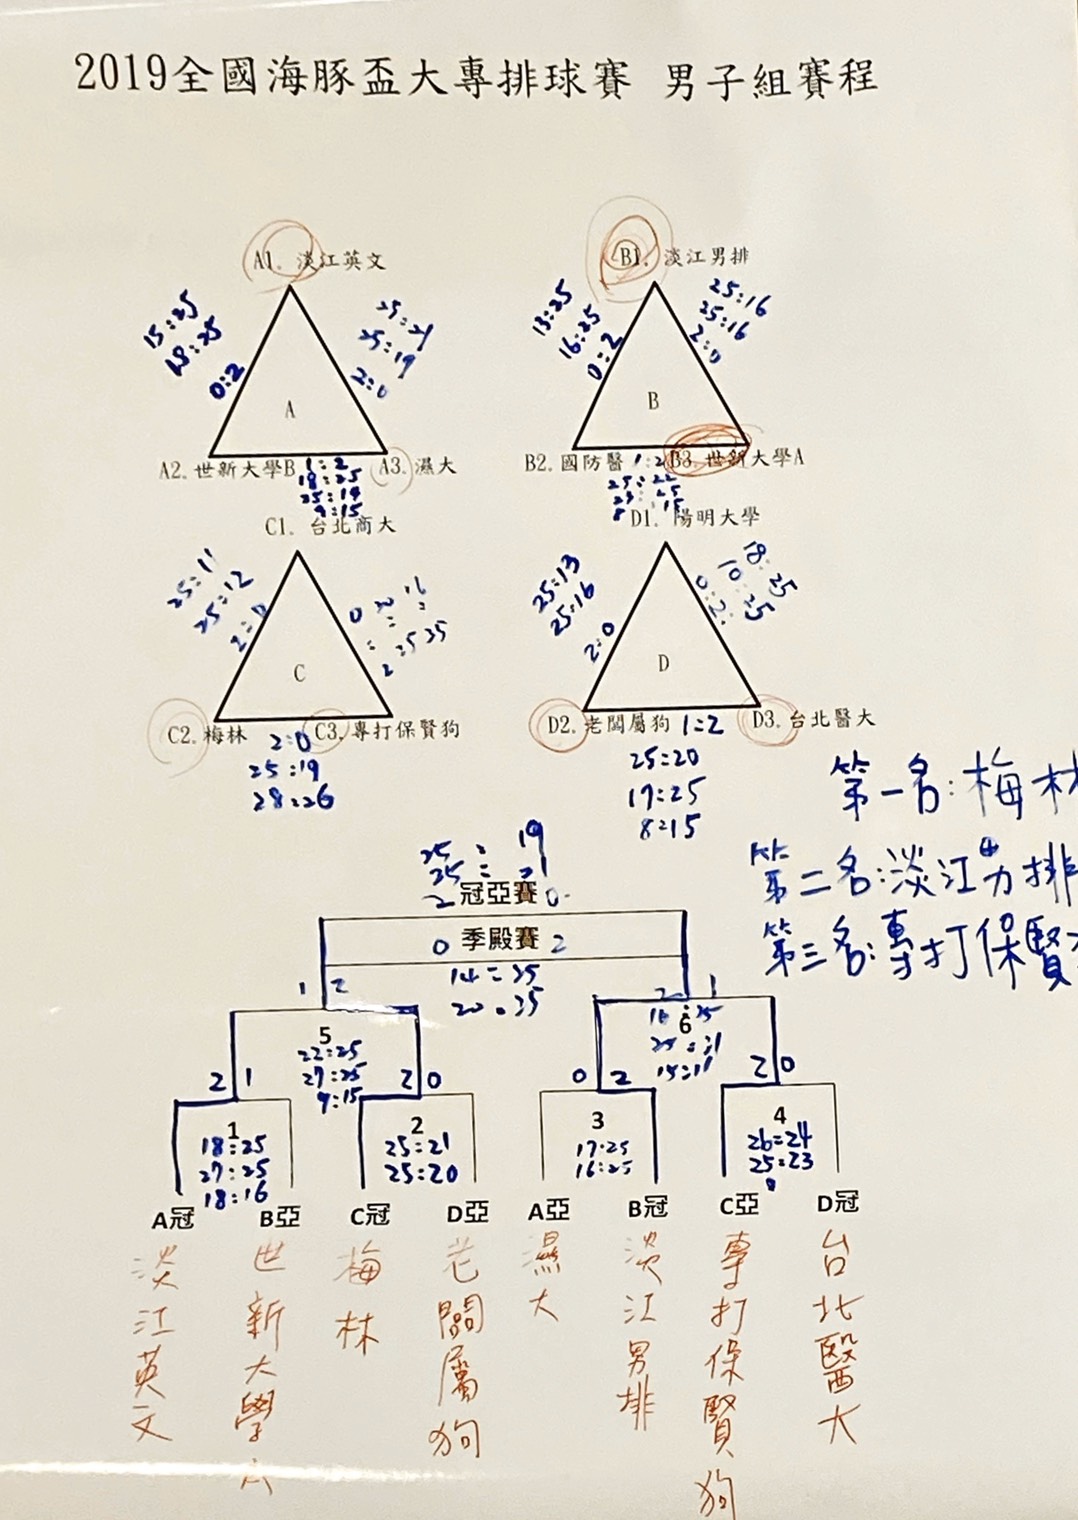 2019全國海豚盃大專排球賽 男子組賽程
A1. 淡江英文
B1. 淡江男排
15:25
18:25
0:2
25:21
25:19
2:0
13:25
16:25
0:2
25:16
25:16
2:0
A
B
A2. 世新大學B
1:2
A3. 濕大
18:25
25:19
9:15
B2. 國防醫
1:2
B3. 世新大學A
25:22
23:25
8:15
C1. 台北商大
D1. 陽明大學
25:11
25:12
2:0
0:2
20:25
16:25
25:13
25:16
2:0
18:25
10:25
0:2
C
D
C2. 梅林
C3. 專打保賢狗
2:0
25:19
28:26
D2. 老闆屬狗
1:2
D3. 台北醫大
25:20
17:25
8:15
第一名:梅林
第二名:淡江男排
第三名:專打保賢
25:19
25:21
2 冠亞賽 0
0 季殿賽 2
14:25
20:25
1 2
2 1
5
22:25
27:25
9:15
6
16:25
25:21
15:11
2 1
2 0
0 2
2 0
1
18:25
27:25
18:16
2
25:21
25:20
3
17:25
16:25
4
26:24
25:23
A冠 B亞 C冠 D亞 A亞 B冠 C亞 D冠
淡江英文
世新大學A
梅林
老闆屬狗
濕大
淡江男排
專打保賢狗
台北醫大